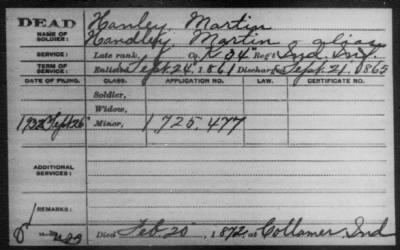 DEAD
Hanley, Martin
NAME OF SOLDIER:
Handley, Martin alias
SERVICE:
Late rank, Co. K 34 Reg't Ind. Inf.
TERM OF SERVICE:
Enlisted Sept. 24, 1861 Discharged Sept. 21, 1865
DATE OF FILING. CLASS. APPLICATION NO. LAW. CERTIFICATE NO.
Soldier,
Widow,
1932 Sept. 26 Minor, 1,725,477
ADDITIONAL SERVICES:
REMARKS:
Died Feb. 20, 1872, at Collamer, Ind